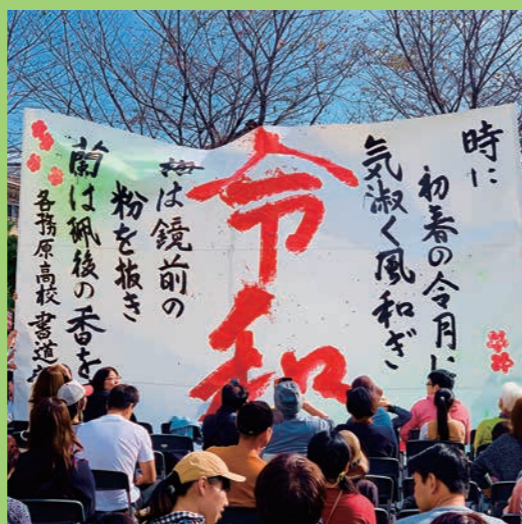 時に
初春の令月に
気淑く風和ぎ
令和
梅は鏡前の
粉を披き
蘭は珮後の香を
各務原高校 書道